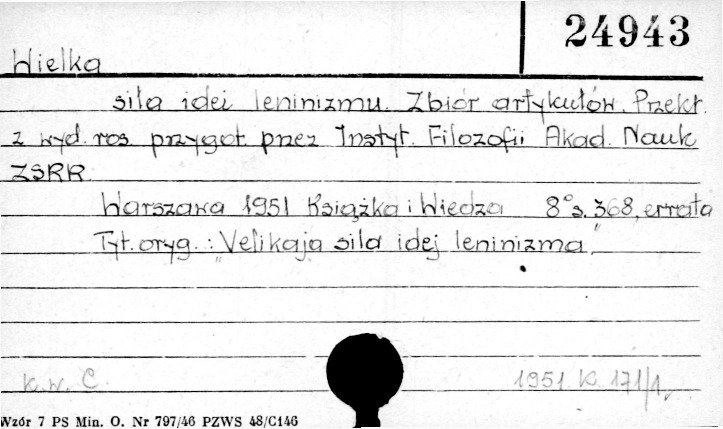 24943
Wielka
siła idei leninizmu. Zbiór artykułów. Przekł.
z wyd. ros. przygot. przez Instyt. Filozofii Akad. Nauk
ZSRR.
Warszawa 1951 Książka i Wiedza 8° s. 368, errata
Tyt. oryg.: "Velikaja sila idej leninizma"
k.w. C. 1951. K. 171/1.
Wzór 7 PS Min. O. Nr 797/46 PZWS 48/C146